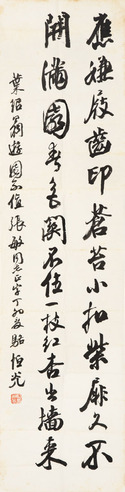 應嫌屐齒印蒼苔小扣柴扉久不
開滿園春色関不住一枝紅杏出墻來
葉紹翁遊園不值 張敏同志正字丁卯夏 恒光